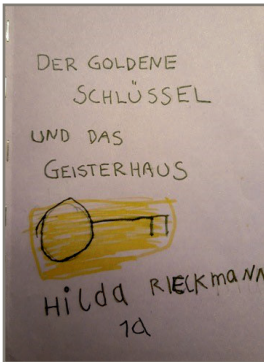 DER GOLDENE
SCHLÜSSEL
UND DAS
GEISTERHAUS
Hilda RIECKmANN
1a